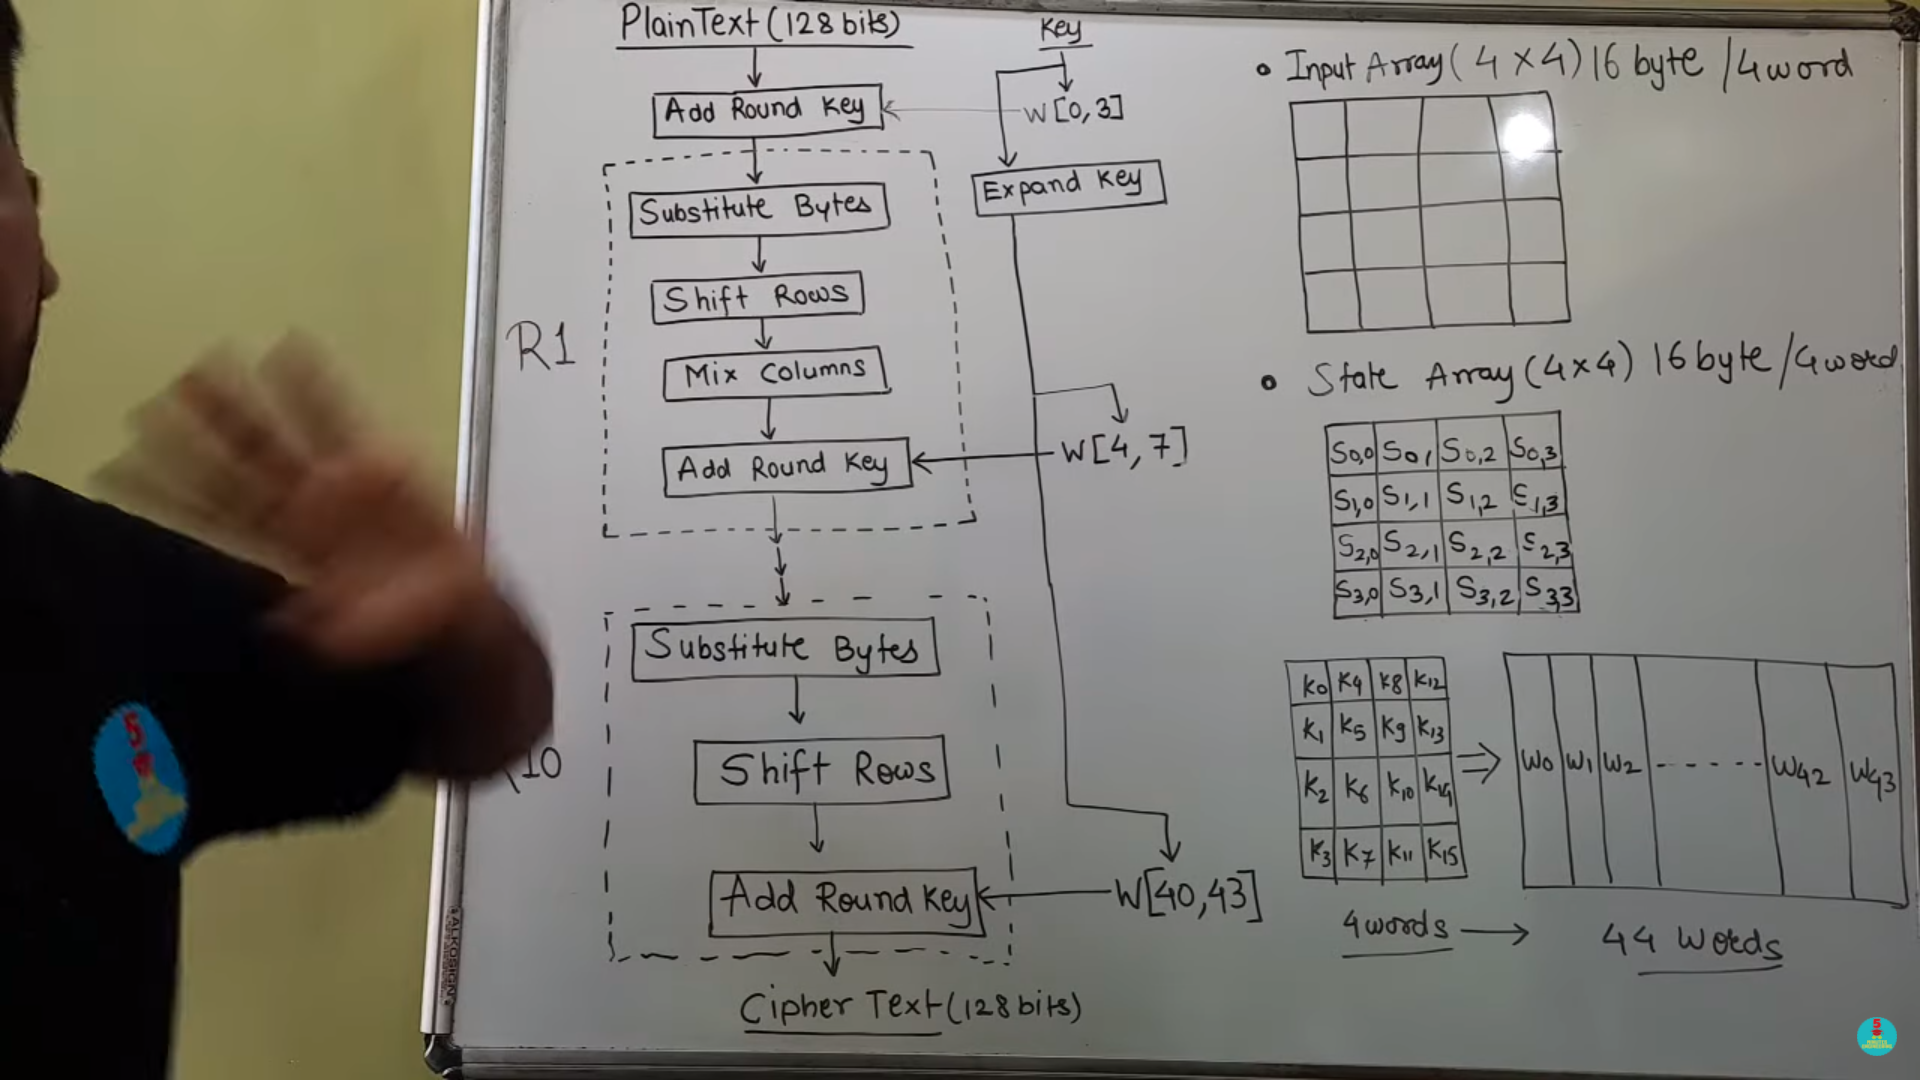 PlainText (128 bits)
Key
Add Round Key
W[0,3]
Expand Key
R1
Substitute Bytes
Shift Rows
Mix Columns
Add Round Key
W[4,7]
10
Substitute Bytes
Shift Rows
Add Round Key
W[40,43]
Cipher Text (128 bits)
• Input Array (4 × 4) 16 byte / 4 word
• State Array (4×4) 16 byte / 4 word
S0,0 S0,1 S0,2 S0,3
S1,0 S1,1 S1,2 S1,3
S2,0 S2,1 S2,2 S2,3
S3,0 S3,1 S3,2 S3,3
K0 K4 K8 K12
K1 K5 K9 K13
K2 K6 K10 K14
K3 K7 K11 K15
⇒
W0 W1 W2 ------ W42 W43
4 words → 44 Words
ALKOSIGN
5
5